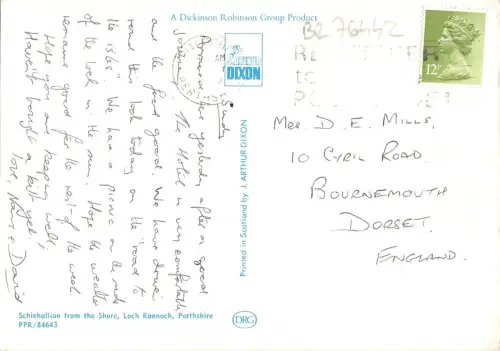 A Dickinson Robinson Group Product
BZ 76442
J ARTHUR
DIXON
12P
Sunday
Arrived here yesterday after a good
journey. The Hotel is very comfortable
and the food good. We have driven
round this loch today on "the road to
the isles". We had a picnic on the side
of the loch in the sun. Hope the weather
remains good for the rest of the week
Hope you are keeping well,
Haven't bought a kilt yet!
Love, & David
Printed in Scotland by J. ARTHUR DIXON
Mrs D. E. MILLS,
10 CYRIL ROAD,
BOURNEMOUTH
DORSET.
ENGLAND.
Schiehallion from the Shore, Loch Rannoch, Perthshire
PPR/84643
DRG